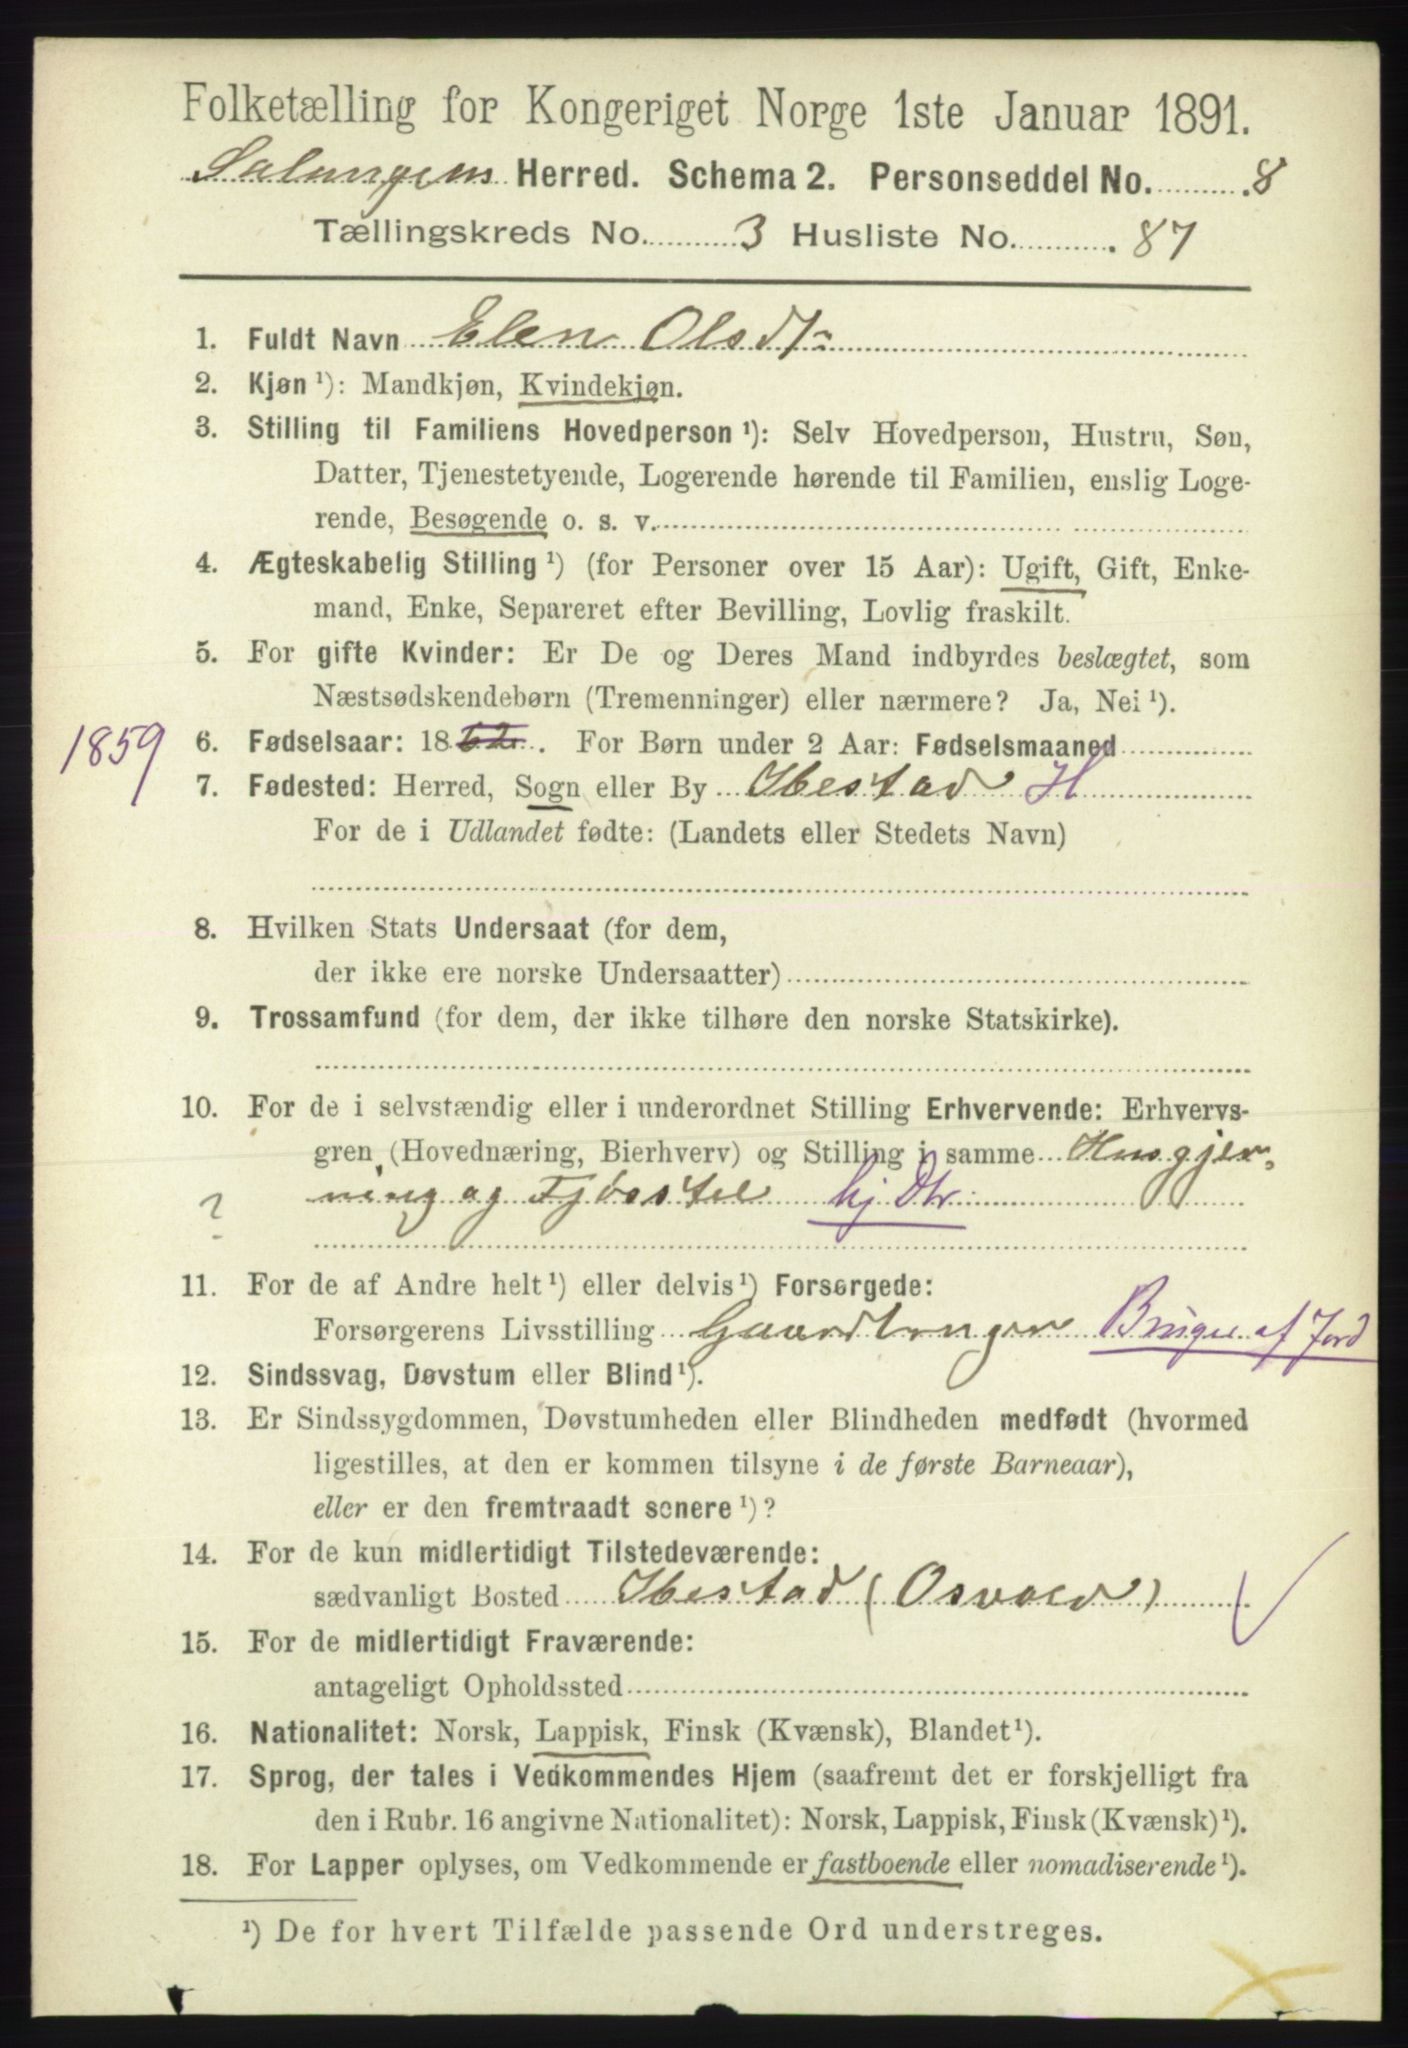 Folketælling for Kongeriget Norge 1ste Januar 1891.
Salangens Herred. Schema 2. Personseddel No. 8
Tællingskreds No. 3 Husliste No. 87
1. Fuldt Navn Elen Olsdtr
2. Kjøn ¹): Mandkjøn, Kvindekjøn.
3. Stilling til Familiens Hovedperson ¹): Selv Hovedperson, Hustru, Søn,
Datter, Tjenestetyende, Logerende hørende til Familien, enslig Loge-
rende, Besøgende o. s. v.
4. Ægteskabelig Stilling ¹) (for Personer over 15 Aar): Ugift, Gift, Enke-
mand, Enke, Separeret efter Bevilling, Lovlig fraskilt.
5. For gifte Kvinder: Er De og Deres Mand indbyrdes beslægtet, som
Næstsødskendebørn (Tremenninger) eller nærmere? Ja, Nei ¹).
1859 6. Fødselsaar: 1862. For Børn under 2 Aar: Fødselsmaaned
7. Fødested: Herred, Sogn eller By Ibestad H
For de i Udlandet fødte: (Landets eller Stedets Navn)
8. Hvilken Stats Undersaat (for dem,
der ikke ere norske Undersaatter)
9. Trossamfund (for dem, der ikke tilhøre den norske Statskirke).
10. For de i selvstændig eller i underordnet Stilling Erhvervende: Erhvervs-
gren (Hovednæring, Bierhverv) og Stilling i samme Husgjer-
? ning og Fjøsstel hj Dtr.
11. For de af Andre helt ¹) eller delvis ¹) Forsørgede:
Forsørgerens Livsstilling Gaardbruger Bruger af Jord
12. Sindssvag, Døvstum eller Blind ¹).
13. Er Sindssygdommen, Døvstumheden eller Blindheden medfødt (hvormed
ligestilles, at den er kommen tilsyne i de første Barneaar),
eller er den fremtraadt senere ¹)?
14. For de kun midlertidigt Tilstedeværende:
sædvanligt Bosted Ibestad (Osvold)
15. For de midlertidigt Fraværende:
antageligt Opholdssted
16. Nationalitet: Norsk, Lappisk, Finsk (Kvænsk), Blandet ¹).
17. Sprog, der tales i Vedkommendes Hjem (saafremt det er forskjelligt fra
den i Rubr. 16 angivne Nationalitet): Norsk, Lappisk, Finsk (Kvænsk) ¹).
18. For Lapper oplyses, om Vedkommende er fastboende eller nomadiserende ¹).
¹) De for hvert Tilfælde passende Ord understreges.